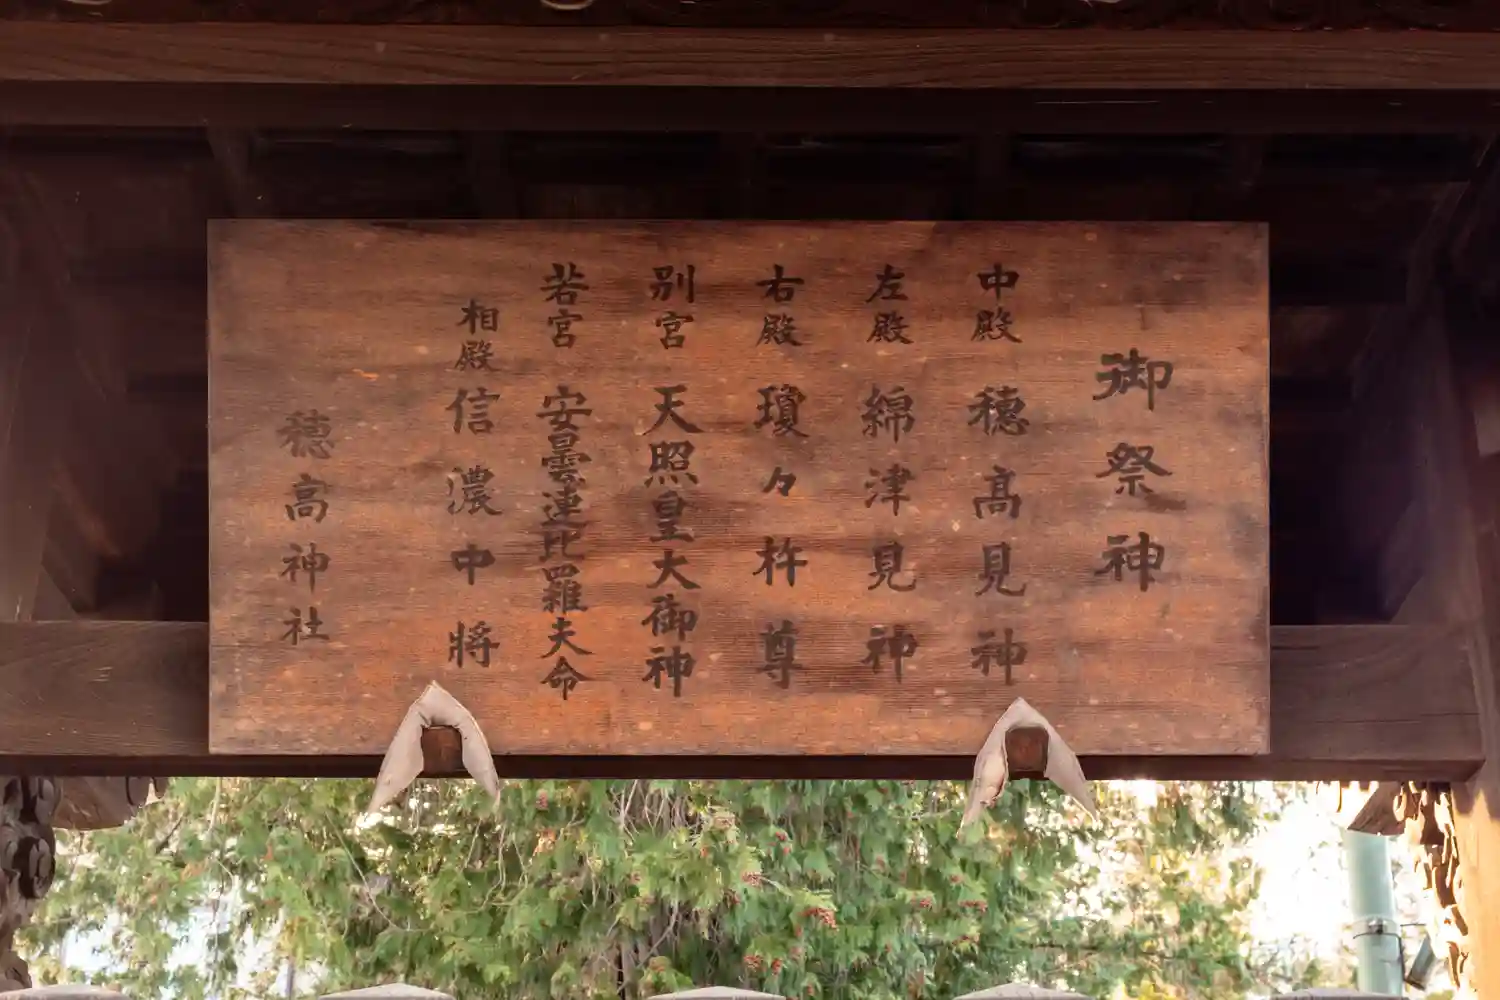 御祭神
中殿 穂髙見神
左殿 綿津見神
右殿 瓊々杵尊
別宮 天照皇大御神
若宮 安曇連比羅夫命
相殿 信濃中將
穂高神社